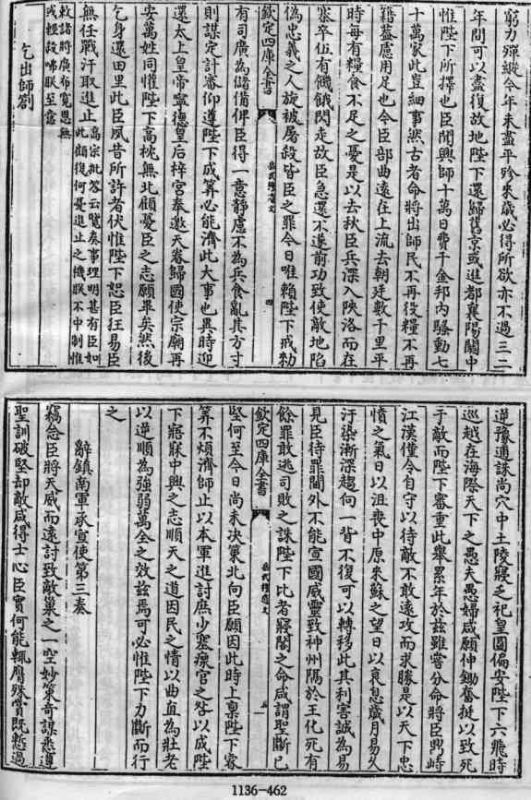 窮力殫縱今年未盡平殄來歲必得所欲亦不過三二
年間可以盡復故地陛下還歸舊京或進都襄陽關中
惟陛下所擇也臣聞興師十萬日費千金邦内騷動七
十萬家此豈細事然古者命將出師民不再役糧不再
籍蓋慮用足也今臣部曲遠在上流去朝廷數千里平
時每有糧食不足之憂是以去秋臣兵深入陜洛而在
寨卒伍有饑餓閃走故臣急還不遂前功致使敵地陷
偽忠義之人旋被屠殺皆臣之罪今日唯賴陛下戒勅
欽定四庫全書
岳武穆遺文
四
有司廣為儲備俾臣得一意靜慮不為兵食亂其方寸
則謀定計審仰遵陛下成算必能濟此大事也異時迎
還太上皇帝寧德皇后梓宮奉邀天眷歸國使宗廟再
安萬姓同懽陛下高枕無北顧憂臣之志願畢矣然後
乞身還田里此臣夙昔所許者伏惟陛下恕臣狂易臣
無任戰汗取進止
高宗批答云覽奏事理明甚有臣如
此顧復何憂進止之機朕不中制惟
敕諸將廣布寬恩無
或輕殺咈朕至意
乞出師劄
逆豫逋誅尚穴中土陵寢乏祀皇圖偏安陛下六飛時
巡越在海際天下之愚夫愚婦咸願伸鋤奮挺以致死
于敵而陛下審重此舉累年於兹雖嘗分命將臣鼎峙
江漢僅令自守以待敵不敢遠攻而求勝是以天下忠
憤之氣日以沮喪中原來蘇之望日以衰息歲月易久
汙染漸深趨向一背不復可以轉移此其利害誠為易
見臣待罪閫外不能宣國威靈致神州隔於王化死有
餘罪敢逃司敗之誅陛下比者寢閣之命咸謂聖斷已
欽定四庫全書
岳武穆遺文
五
堅何至今日尚未決策北向臣願因此時上稟陛下睿
算不煩濟師止以本軍進討庶少塞瘝官之咎以成陛
下寤寐中興之志順天之道因民之情以曲直為壯老
以逆順為強弱萬全之效兹焉可必惟陛下力斷而行
之
辭鎮南軍承宣使第三奏
竊念臣將天威而遠討致敵巢之一空妙策奇謀悉遵
聖訓破堅却敵咸得士心臣實何能輒膺殊賞既慙過
1136-462